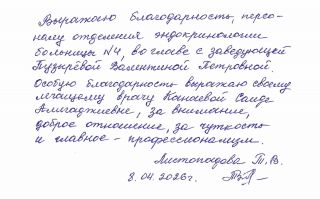 Выражаю благодарность, персо-
налу отделения эндокринологии
больницы №4, во главе с заведующей
Пузырёвой Валентиной Петровной.
Особую благодарность выражаю своему
лечащему врачу Канаевой Саиде
Алигаджиевне, за внимание,
доброе отношение, за чуткость
и главное - профессионализм.
Листопадова Т. В.
8.04.2026г.